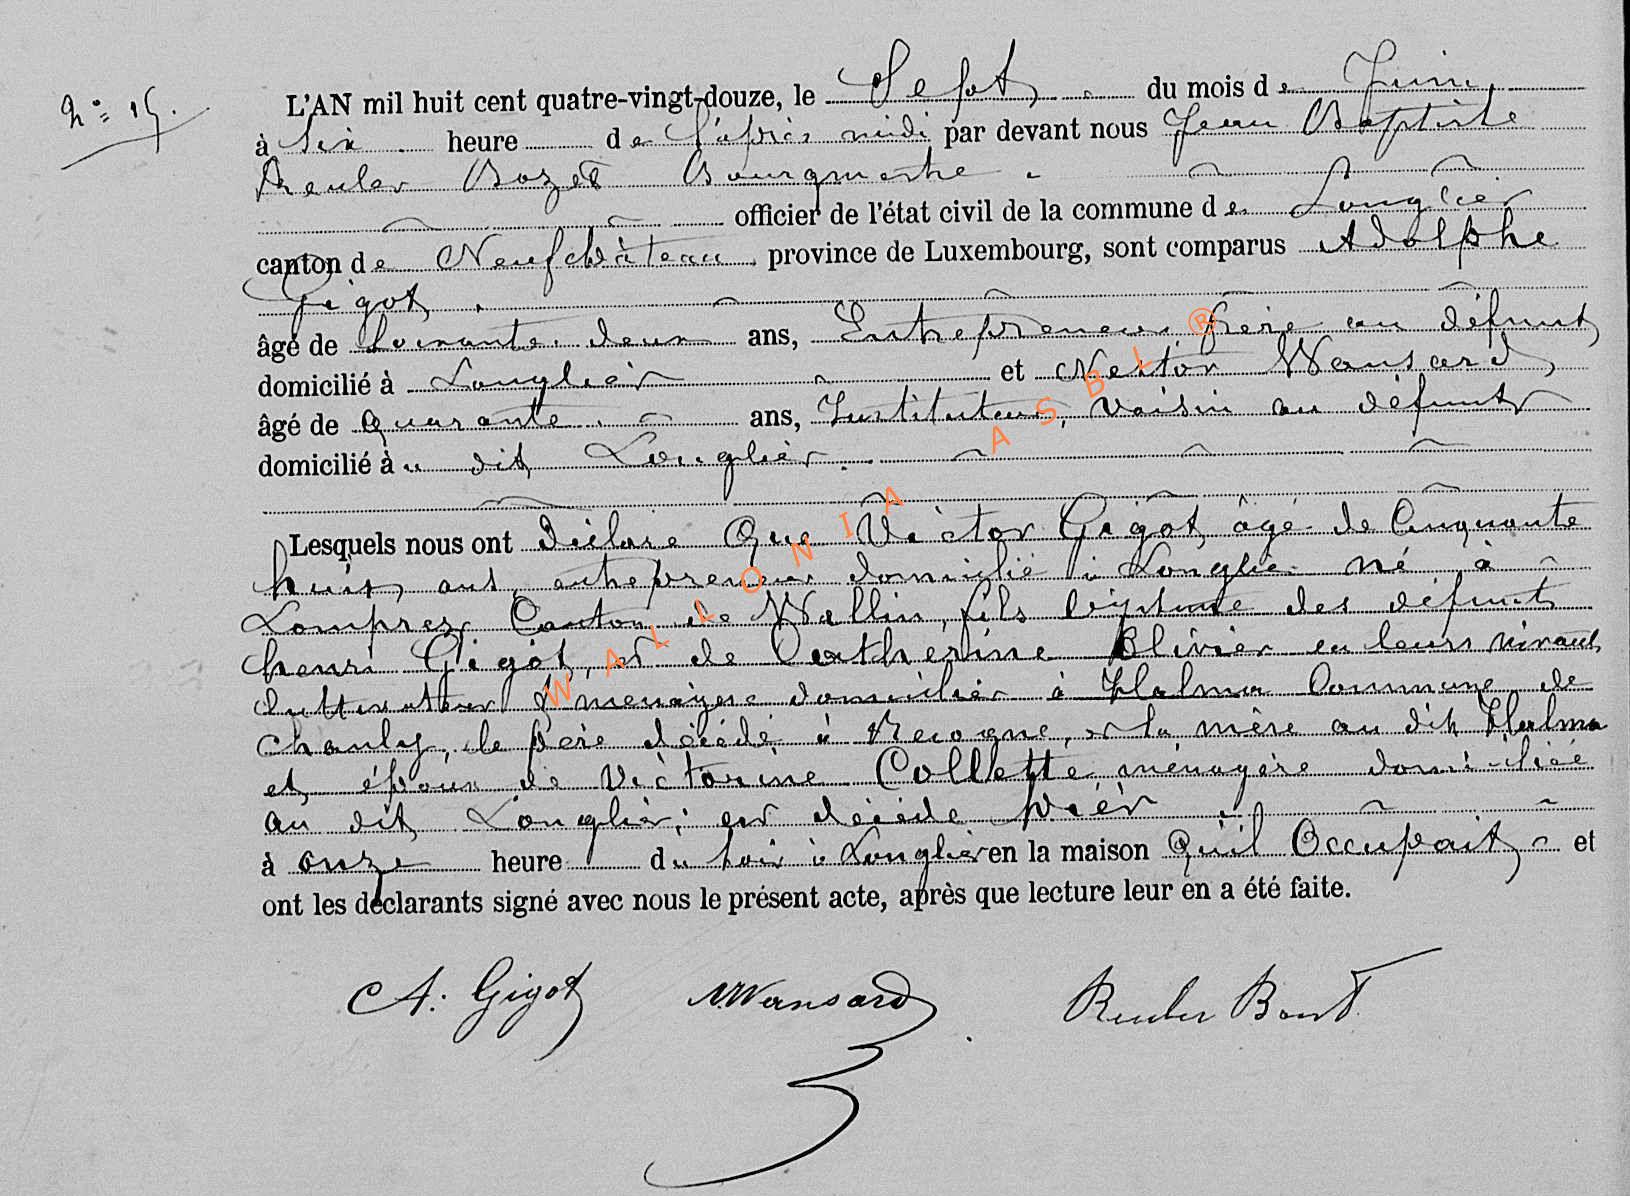 N°= 15.
L'AN mil huit cent quatre-vingt-douze, le Sept du mois de Juin,
à six heure de l'après midi par devant nous Jean Baptiste
Reuler Bozet Bourgmestre
officier de l'état civil de la commune de Longlier
canton de Neufchâteau, province de Luxembourg, sont comparus Adolphe
Gigot
âgé de soixante deux ans, Entrepreneur, frère au défunt
domicilié à Longlier et Nestor Wansard,
âgé de quarante ans, Instituteur, voisin au défunt
domicilié à u dit Longlier.
Lesquels nous ont déclaré que Victor Gigot, âgé de Cinquante
huit, ans, entrepreneur domicilié à Longlier né à
Lomprez Canton de Wellin, fils légitime des défunts
henri Gigot, et de Catherine Olivier en leurs vivant
cultivateur & ménagère domiciliés à Halma Commune de
chanly, le père décédé à Recogne, et la mère au dit Halma
et, époux de Victorine Collette ménagère domiciliée
au dit Longlier, est décédé hièr
à onze heure du soir à Longlier en la maison Qu'il Occupait, et
ont les déclarants signé avec nous le présent acte, après que lecture leur en a été faite.
A. Gigot N. Wansard Reuler
WALLONIA ASBL ®